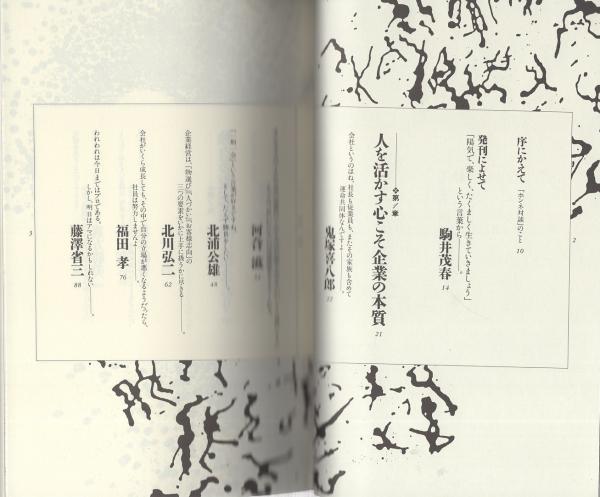 序にかえて 「ホンネ対談」のこと 10
発刊によせて
「陽気で、楽しく、たくましく生きていきましょう」
という言葉から———。
駒井茂春 14
❖第／章
人を活かす心こそ企業の本質 21
会社というのはね、社長も従業員も、またその家族も含めて
運命共同体なんです———。
鬼塚喜八郎 22
河合
北浦公雄 48
企業経営は、「物選び」「人づかい」「お客様志向」の
三つの要素をいかに上手に扱うかに尽きる———。
北川弘二 62
会社がいくら成長しても、その中で自分の立場が悪くなるようだったら、
社員は努力しませんよ———。
福田 孝 76
われわれは今日まではプロである。
しかし、明日はアマになるかもしれない———。
藤澤省三 88
2
3